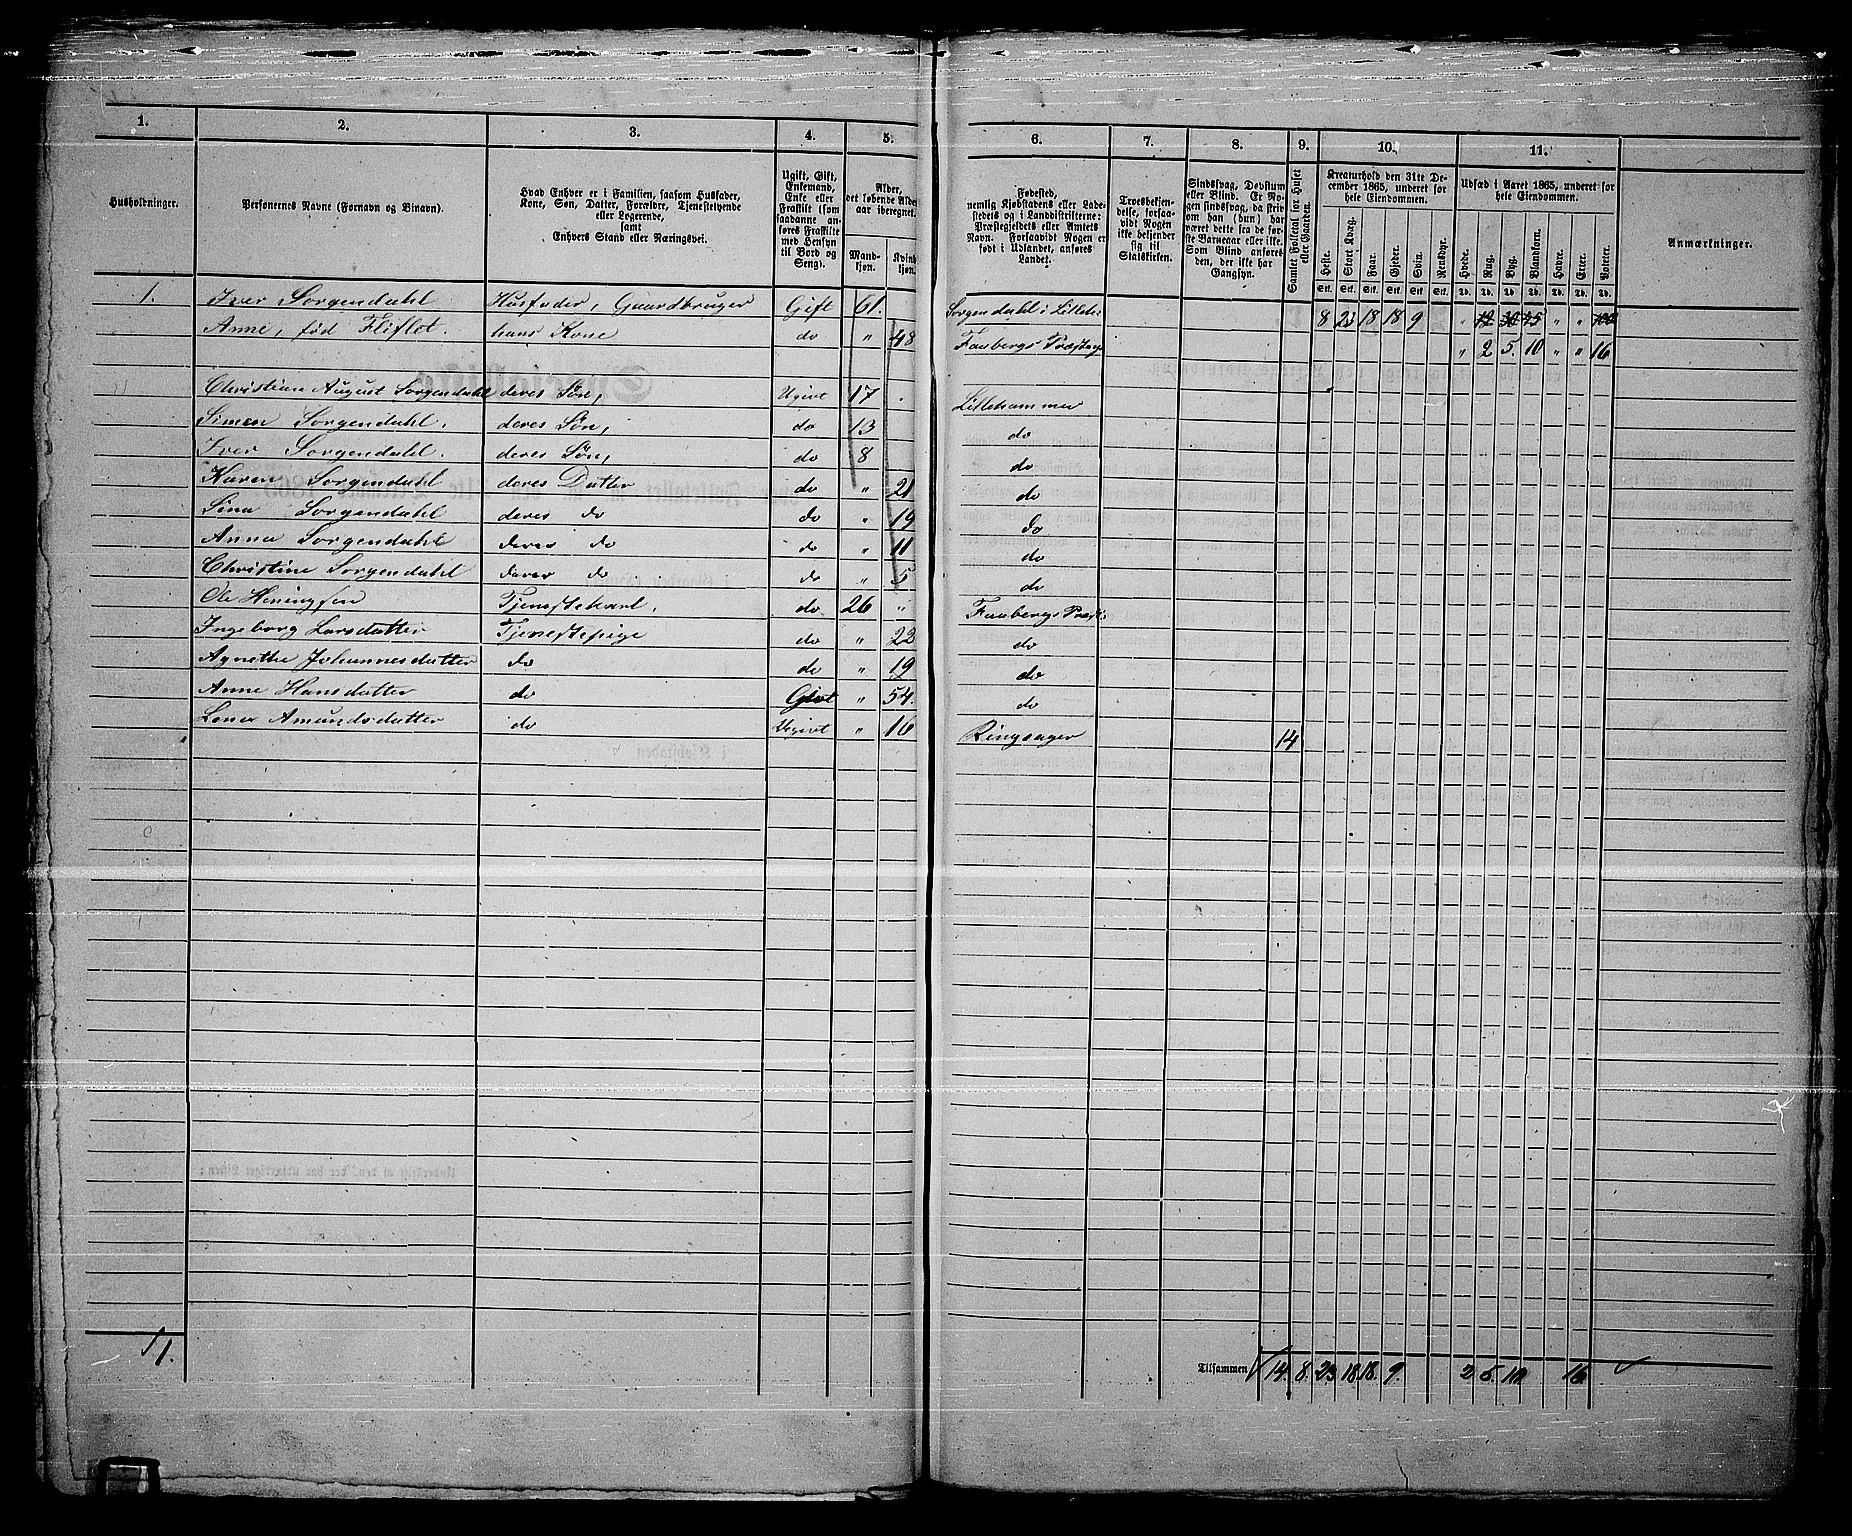 1. 2. 3. 4. 5. 6. 7. 8. 9. 10. 11.
Husholdninger.
Personernes Navne (Fornavn og Binavn).
Hvad Enhver er i Familien, saasom Husfader,
Kone, Søn, Datter, Forældre, Tjenestetyende
eller Logerende,
samt
Enhvers Stand eller Næringsvei.
Ugift, Gift,
Enkemand,
Enke eller
Fraskilt (som
saadanne an-
føres Fraskilte
med Hensyn
til Bord og
Seng).
Alder,
det løbende Alders-
aar iberegnet.
Mand-
kjøn.
Kvind-
kjøn.
Fødested,
nemlig Kjøbstadens eller Lade-
stedets og i Landdistrikterne:
Præstegjeldets eller Amtets
Navn. Forsaavidt Nogen er
født i Udlandet, anføres
Landet.
Troesbekjen-
delse, forsaa-
vidt Nogen
ikke bekjender
sig til
Statskirken.
Sindssvag, Døvstum
eller Blind. Er No-
gen sindssvag, da skriv
om han (hun) har
været dette fra de før-
ste Barneaar eller ikke.
Som Blind anføres
den, der ikke har
Gangsyn.
Samlet Folketal for Huset
eller Gaarden.
Kreaturhold den 31te De-
cember 1865, underet for
hele Eiendommen.
Udsæd i Aaret 1865, underet for
hele Eiendommen.
Heste. Stort Kvæg. Faar. Gjeder. Svin. Rensdyr. Hvede. Rug. Byg. Blandkorn. Havre. Erter. Poteter.
Stk. Stk. Stk. Stk. Stk. Stk. Td. Td. Td. Td. Td. Td. Td.
Anmærkninger.
1. Iver Sorgendahl Husfader, Gaardbruger Gift 61. Sorgendahl i Lilleh: 8 23 18 18 9
Anne, fød Fliflet. hans Kone do " 48 Faabergs Præstegj " 2 5. 10 " " 16
Christian August Sorgendahl deres Søn, Ugivt 17 . Lillehammer
Simen Sorgendahl. deres Søn, do 13 do
Iver Sorgendahl. deres Søn, do 8 do
Karen Sorgendahl deres Datter do " 21 do
Sina Sorgendahl deres do do " 19 do
Anna Sorgendahl deres do do " 11 do
Christine Sorgendahl deres do do " 5 do
Ole Heningsen Tjenestekarl. do 26 " Faabergs Præst:
Ingeborg Larsdatter Tjenestepige do " 23 do
Agnethe Johannesdatter do do " 19 do
Anne Hansdatter do Givt " 54. do
Lena Amundsdatter do Ugivt " 16 Ringsager 14
1. Tilsammen 14. 8. 23 18 18. 9. 2 5. 10 16